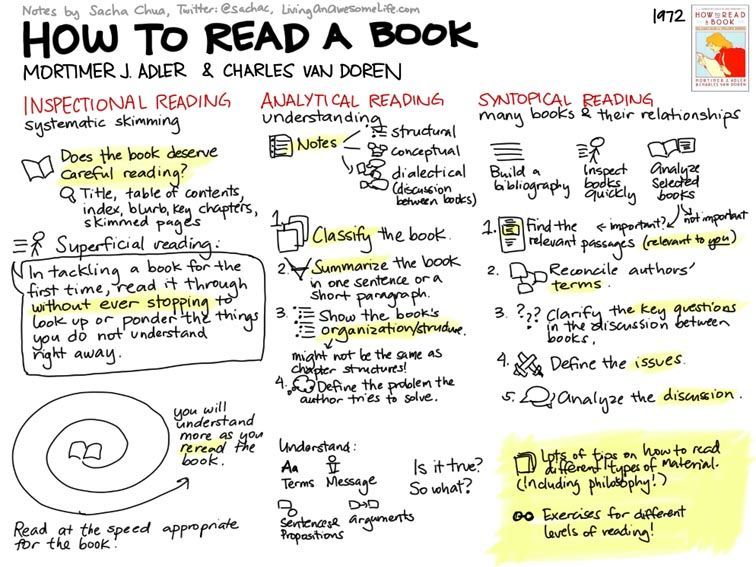 Notes by Sacha Chua, Twitter: @sachac, LivingAnAwesomeLife.com
HOW TO READ A BOOK
MORTIMER J. ADLER & CHARLES VAN DOREN
1972
HOW TO READ
A BOOK
MORTIMER J. ADLER
& CHARLES VAN DOREN
INSPECTIONAL READING
systematic skimming
Does the book deserve
careful reading?
Title, table of contents,
index, blurb, key chapters,
skimmed pages
Superficial reading:
In tackling a book for the
first time, read it through
without ever stopping to
look up or ponder the things
you do not understand
right away.
you will
understand
more as you
reread the
book.
Read at the speed appropriate
for the book.
ANALYTICAL READING
understanding
Notes
structural
conceptual
dialectical
(discussion
between books)
1. Classify the book.
2. Summarize the book
in one sentence or a
short paragraph.
3. Show the book's
organization/structure.
might not be the same as
chapter structures!
4. Define the problem the
author tries to solve.
Understand:
Aa
Terms
Message
Sentences &
Propositions
arguments
Is it true?
So what?
SYNTOPICAL READING
many books & their relationships
Build a
bibliography
Inspect
books
quickly
Analyze
selected
books
important?
not important
1. Find the
relevant passages (relevant to you)
2. Reconcile authors'
terms.
3. ???  Clarify the key questions
in the discussion between
books.
4. Define the issues.
5. Analyze the discussion.
Lots of tips on how to read
different types of material.
(Including philosophy!)
Exercises for different
levels of reading!